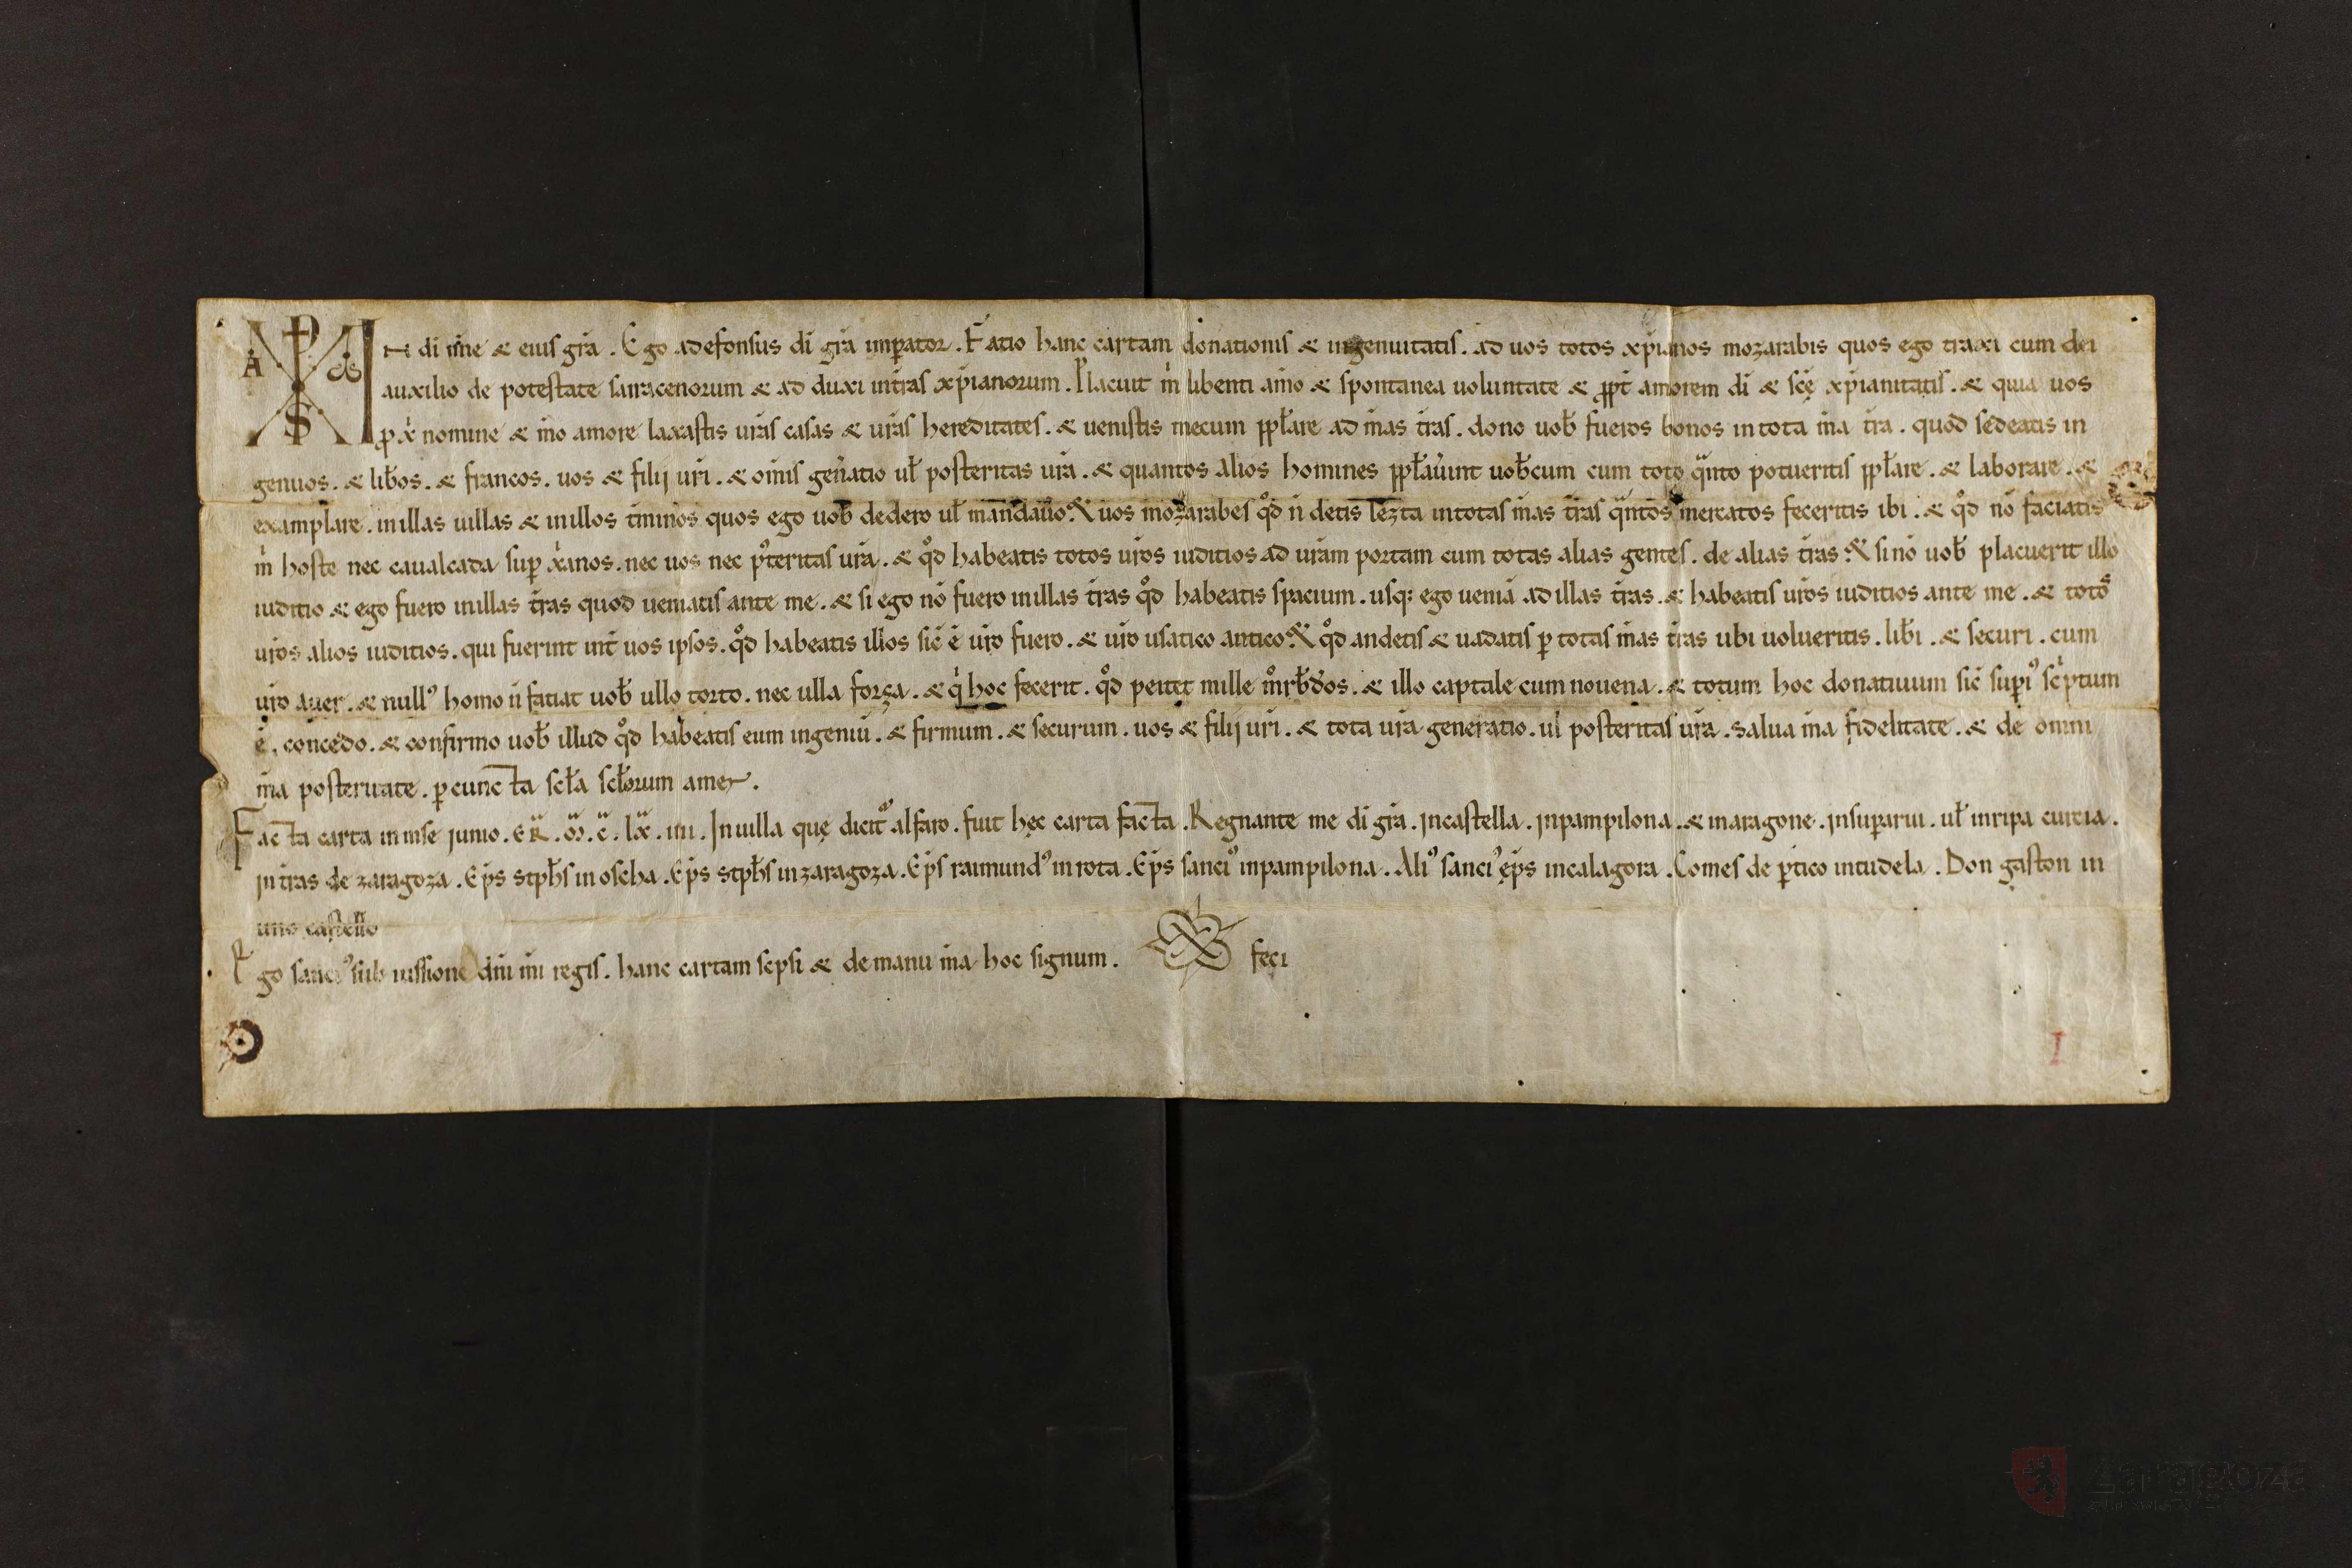 In di nne & eius gra. Ego adefonsus di gra imperator. Fatio hanc cartam donationis & ingenuitatis. ad uos totos xpianos mozarabis quos ego traxi cum dei
auxilio de potestate sarracenorum & ad duxi in tras xpianorum. Placuit m libenti amo & spontanea uoluntate & ppt amorem di & sce xpianitatis. & quia uos
p x nomine & mo amore laxastis uras casas & uras hereditates. & uenistis mecum pplare ad mas tras. dono uob fueros bonos in tota ma tra. quod sedeatis in
genuos. & libos. & francos. uos & filij uri. & omis genatio ul posteritas ura. & quantos alios homines pplauint uobcum cum toto qnto potueritis pplare. & laborare. &
examplare. in illas uillas & in illos tminos quos ego uob dedero ul mandauo. & uos mozarabes qd n detis lezta in totas mas tras qntos mercatos feceritis ibi. & qd no faciatis
m hoste nec caualcada sup xanos. nec uos nec pteritas ura. & qd habeatis totos uros iuditios ad uram portam cum totas alias gentes. de alias tras. & si no uob placuerit illo
iuditio & ego fuero in illas tras quod ueniatis ante me. & si ego no fuero in illas tras qd habeatis spacium. usq; ego uenia ad illas tras. & habeatis uros iuditios ante me. & totos
uros alios iuditios. qui fuerint int uos ipsos. qd habeatis illos sic e uro fuero. & uro usatico antico. & qd andetis & uadatis p totas mas tras ubi uolueritis. libi. & securi. cum
uro auer. & null' homo n fatiat uob ullo torto. nec ulla forza. & qi hoc fecerit. qd peitet mille morbdos. & illo captale cum nouena. & totum hoc donatiuum sic supi' scptum
e. concedo. & confirmo uob illud qd habeatis eum ingeniu. & firmum. & securum. uos & filij uri. & tota ura generatio. ul posteritas ura. salua ma fidelitate. & de omni
ma posteritate. p cuncta scla sclorum amen.
Facta carta in mse junio. ER. M. C. LX. IIII. In uilla que dicit' alfaro. fuit hec carta facta. Regnante me di gra. in castella. in pampilona. & in aragone. in suprarui. ul in ripa curcia.
in tras de zaragoza. Eps stphs in oscha. Eps stphs in zaragoza. Eps raimund' in rota. Eps sanci' in pampilona. Ali' sanci' eps in calagora. Comes de ptico in tudela. Don gaston in
uno castello
Ego sanci' sub iussione dni mi regis. hanc cartam scpsi & de manu ma hoc signum. feci
A
S
I
Zaragoza